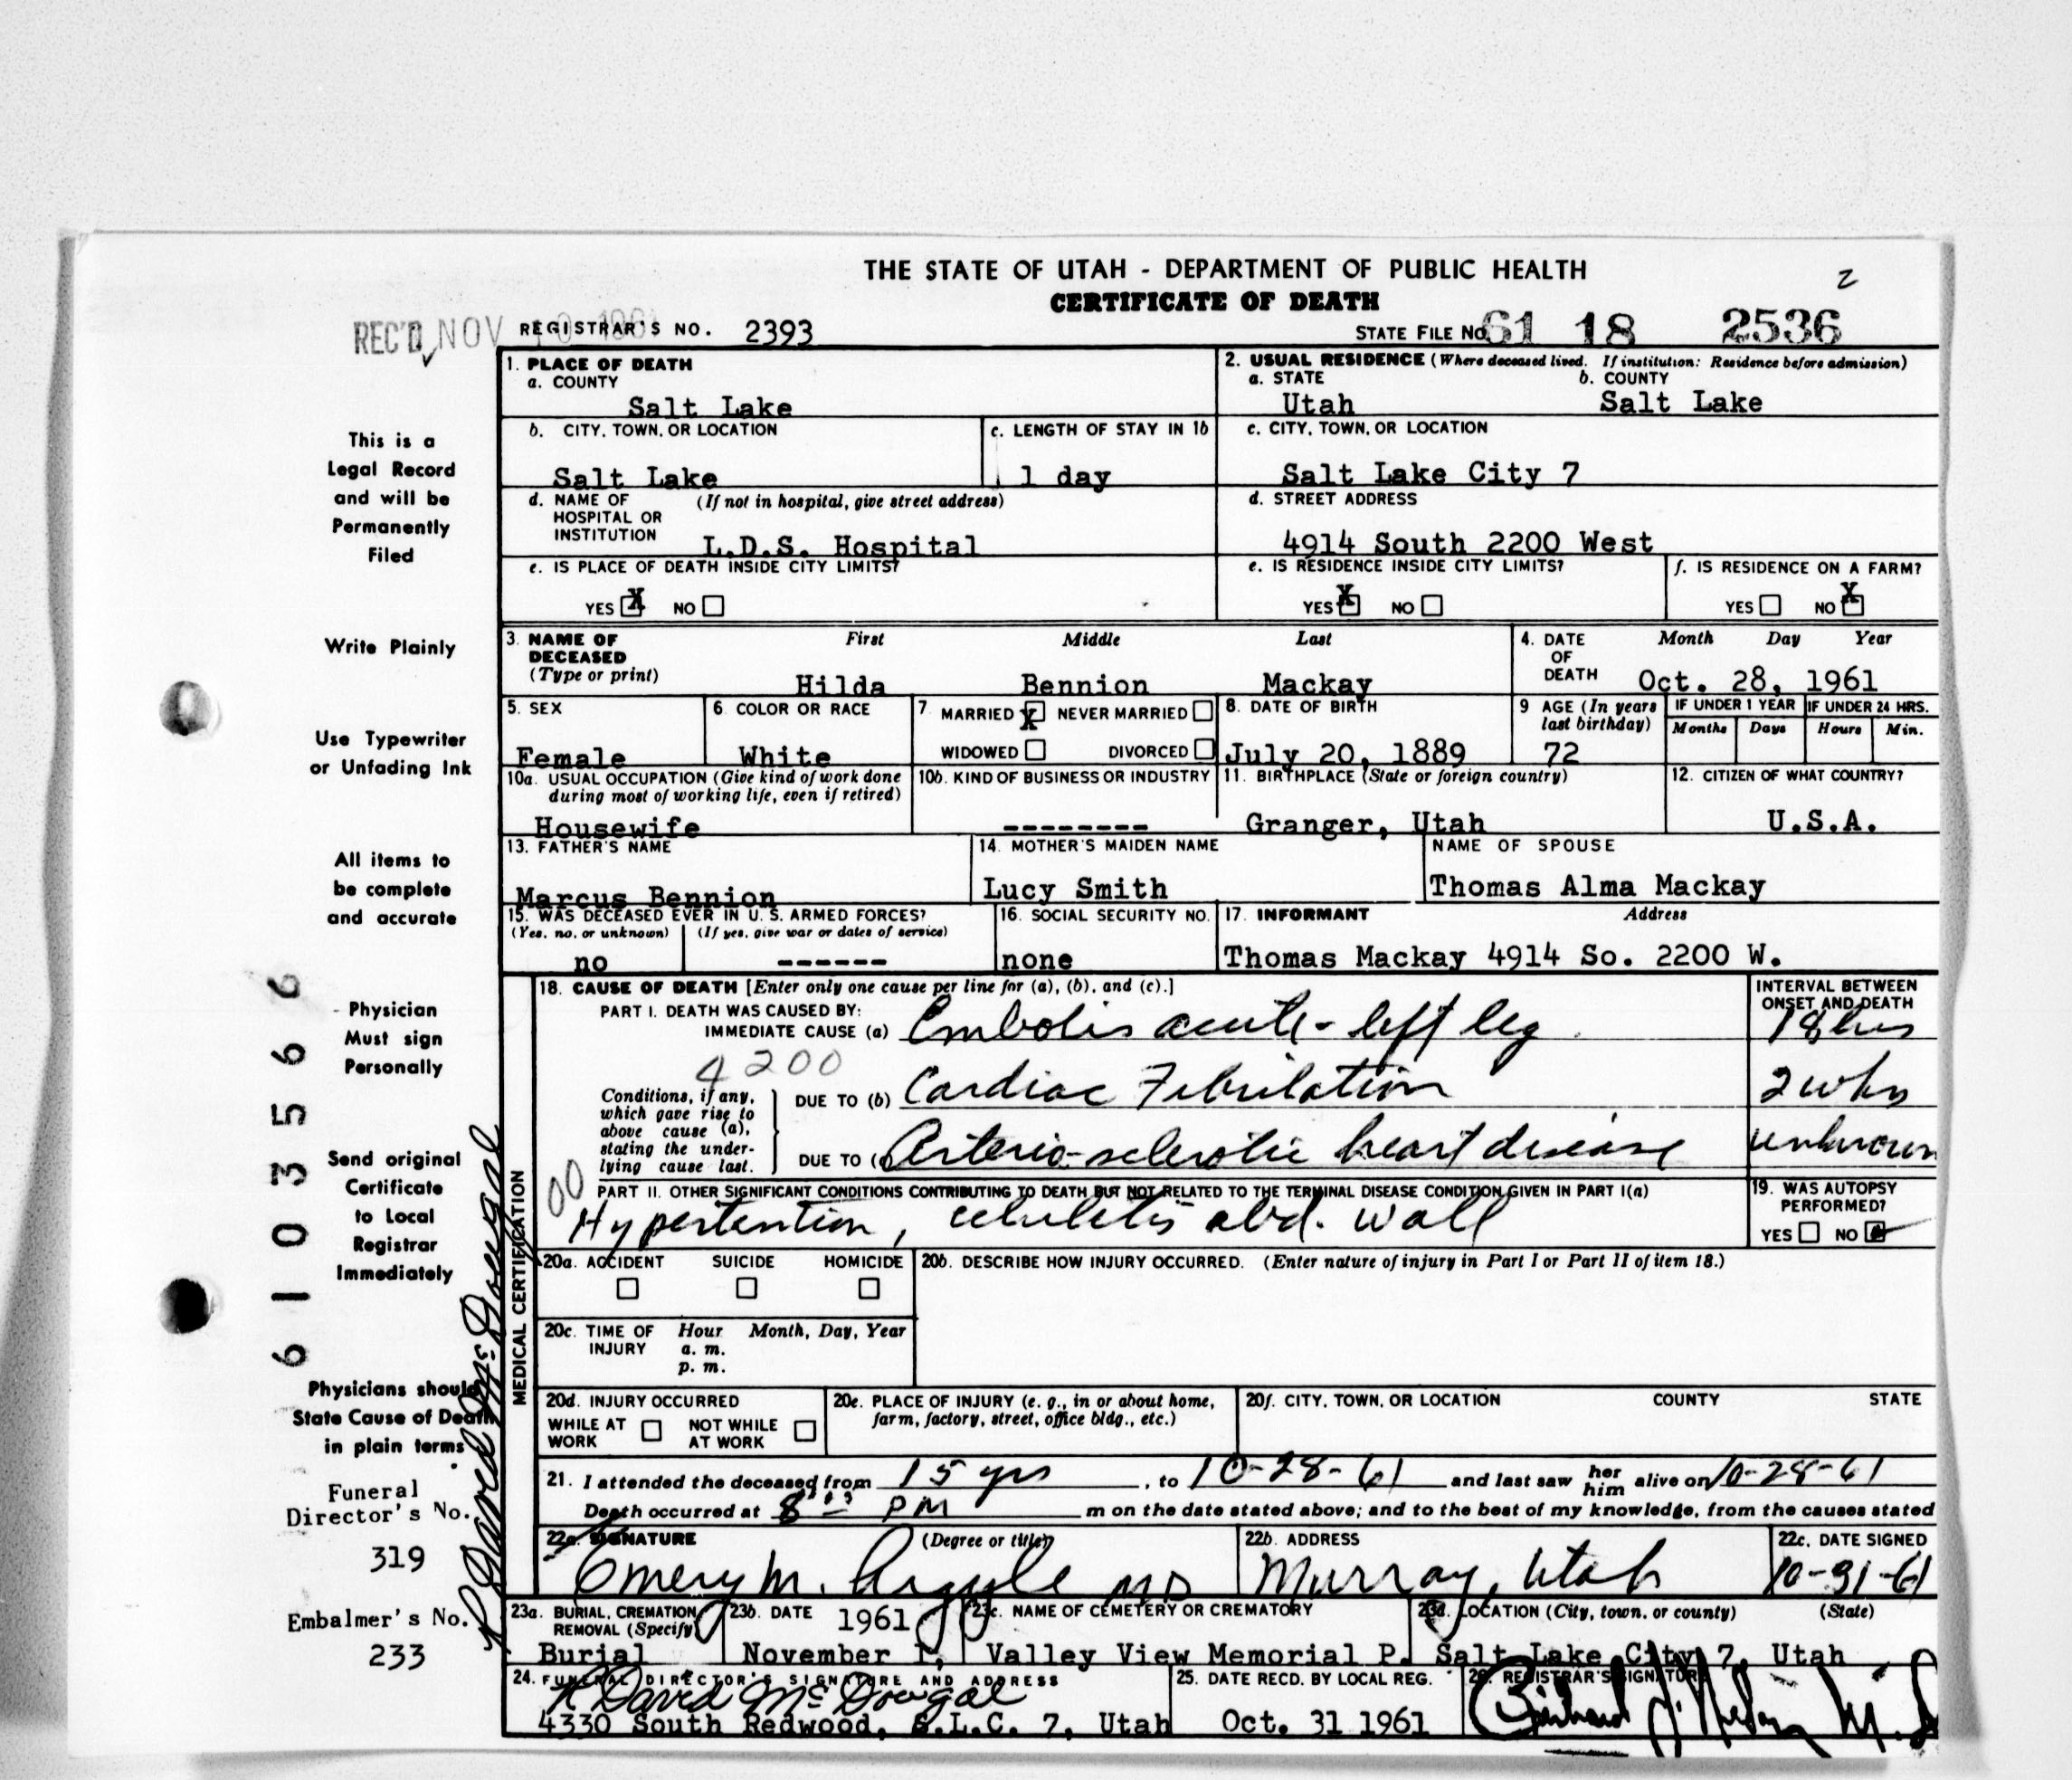 THE STATE OF UTAH - DEPARTMENT OF PUBLIC HEALTH
2
CERTIFICATE OF DEATH
REC'D NOV
REGISTRAR'S NO. 2393
STATE FILE NO. 61 18 2536
1. PLACE OF DEATH
a. COUNTY
Salt Lake
2. USUAL RESIDENCE (Where deceased lived. If institution: Residence before admission)
a. STATE
b. COUNTY
Utah
Salt Lake
b. CITY, TOWN, OR LOCATION
Salt Lake
c. LENGTH OF STAY IN 1b
1 day
c. CITY, TOWN, OR LOCATION
Salt Lake City 7
d. NAME OF (If not in hospital, give street address)
HOSPITAL OR
INSTITUTION
L.D.S. Hospital
d. STREET ADDRESS
4914 South 2200 West
e. IS PLACE OF DEATH INSIDE CITY LIMITS?
YES X NO
e. IS RESIDENCE INSIDE CITY LIMITS?
YES X NO
f. IS RESIDENCE ON A FARM?
YES NO X
3. NAME OF
DECEASED
(Type or print)
First Middle Last
Hilda Bennion Mackay
4. DATE
OF
DEATH
Month Day Year
Oct. 28, 1961
5. SEX
Female
6. COLOR OR RACE
White
7 MARRIED X NEVER MARRIED
WIDOWED DIVORCED
8. DATE OF BIRTH
July 20, 1889
9 AGE (In years
last birthday)
72
IF UNDER 1 YEAR
Months Days
IF UNDER 24 HRS.
Hours Min.
10a. USUAL OCCUPATION (Give kind of work done
during most of working life, even if retired)
Housewife
10b. KIND OF BUSINESS OR INDUSTRY
--------
11. BIRTHPLACE (State or foreign country)
Granger, Utah
12. CITIZEN OF WHAT COUNTRY?
U.S.A.
13. FATHER'S NAME
Marcus Bennion
14. MOTHER'S MAIDEN NAME
Lucy Smith
NAME OF SPOUSE
Thomas Alma Mackay
15. WAS DECEASED EVER IN U. S. ARMED FORCES?
(Yes, no, or unknown) (If yes, give war or dates of service)
no ------
16. SOCIAL SECURITY NO.
none
17. INFORMANT Address
Thomas Mackay 4914 So. 2200 W.
MEDICAL CERTIFICATION
18. CAUSE OF DEATH [Enter only one cause per line for (a), (b), and (c).]
INTERVAL BETWEEN
ONSET AND DEATH
PART I. DEATH WAS CAUSED BY:
IMMEDIATE CAUSE (a) Embolis acute - left leg
18 hrs
4200
Conditions, if any,
which gave rise to
above cause (a),
stating the under-
lying cause last.
DUE TO (b) Cardiac Fibrilation
2 wks
DUE TO ( Arterio-sclerotic heart disease
unknown
00
PART II. OTHER SIGNIFICANT CONDITIONS CONTRIBUTING TO DEATH BUT NOT RELATED TO THE TERMINAL DISEASE CONDITION GIVEN IN PART I(a)
Hypertention, celulitis abd. wall
19. WAS AUTOPSY
PERFORMED?
YES NO
20a. ACCIDENT SUICIDE HOMICIDE
20b. DESCRIBE HOW INJURY OCCURRED. (Enter nature of injury in Part I or Part II of item 18.)
20c. TIME OF
INJURY
Hour Month, Day, Year
a. m.
p. m.
20d. INJURY OCCURRED
WHILE AT
WORK
NOT WHILE
AT WORK
20e. PLACE OF INJURY (e. g., in or about home,
farm, factory, street, office bldg., etc.)
20f. CITY, TOWN, OR LOCATION COUNTY STATE
21. I attended the deceased from 15 yrs, to 10-28-61 and last saw her him alive on 10-28-61
Death occurred at 8 PM m on the date stated above; and to the best of my knowledge, from the causes stated
22a. SIGNATURE (Degree or title)
Emery M. Argyle MD
22b. ADDRESS
Murray, Utah
22c. DATE SIGNED
10-31-61
23a. BURIAL, CREMATION
REMOVAL (Specify)
Burial
23b. DATE 1961
November 1,
23c. NAME OF CEMETERY OR CREMATORY
Valley View Memorial P.
23d. LOCATION (City, town, or county) (State)
Salt Lake City 7, Utah
24. FUNERAL DIRECTOR'S SIGNATURE AND ADDRESS
R David McDougal
4330 South Redwood, S.L.C. 7, Utah
25. DATE RECD. BY LOCAL REG.
Oct. 31 1961
26. REGISTRAR'S SIGNATURE
This is a
Legal Record
and will be
Permanently
Filed
Write Plainly
Use Typewriter
or Unfading Ink
All items to
be complete
and accurate
Physician
Must sign
Personally
Send original
Certificate
to Local
Registrar
Immediately
Physicians should
State Cause of Death
in plain terms
Funeral
Director's No.
319
Embalmer's No.
233
R David McDougal
6103566